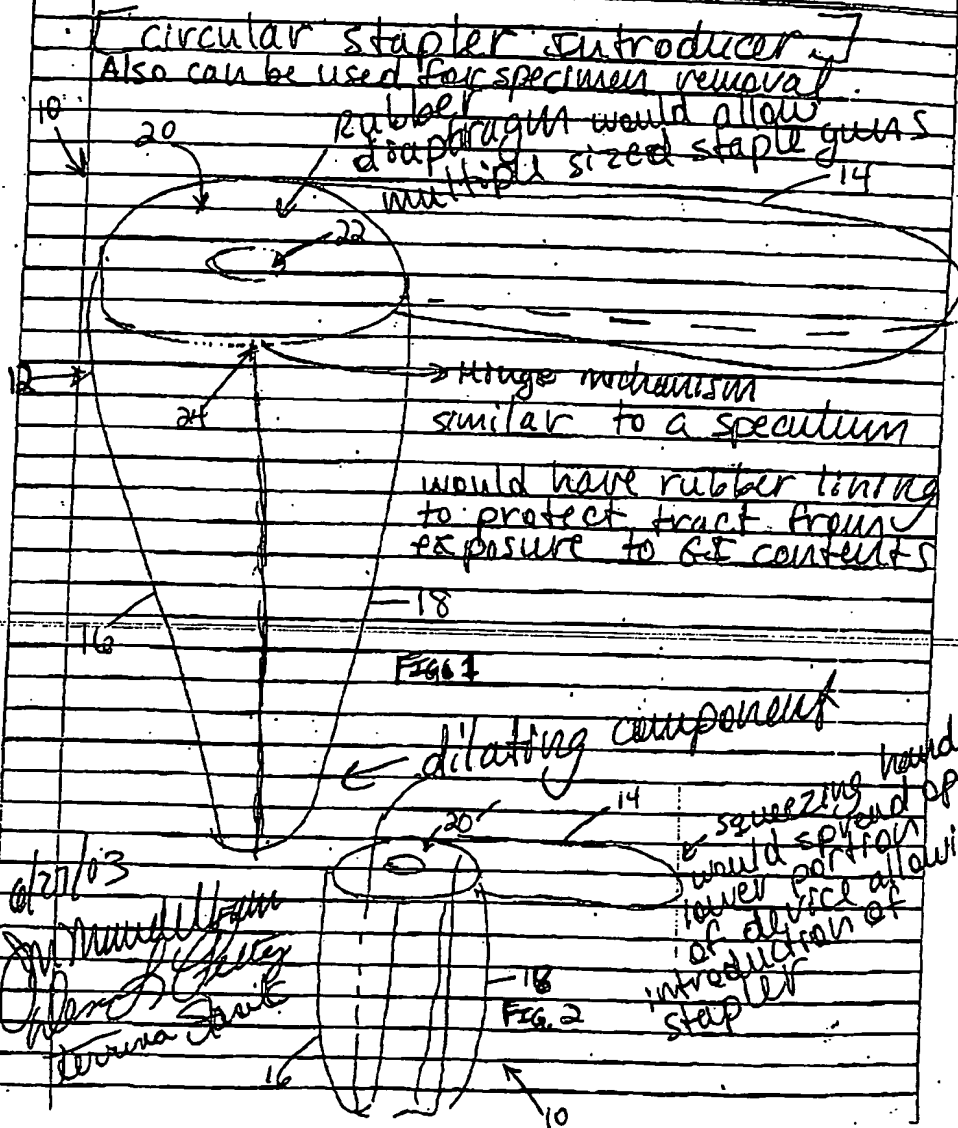 [circular stapler introducer]
Also can be used for specimen removal
10
20
Rubber
diaphragm would allow
multiple sized staple guns
14
22
12
24
Hinge mechanism
similar to a speculum
would have rubber lining
to protect tract from
exposure to GI contents
16
18
FIG. 1
dilating component
20
14
squeezing hand
would spread op
lower portion
of device allowi
introduction of
stapler
/27/03
18
FIG. 2
16
10